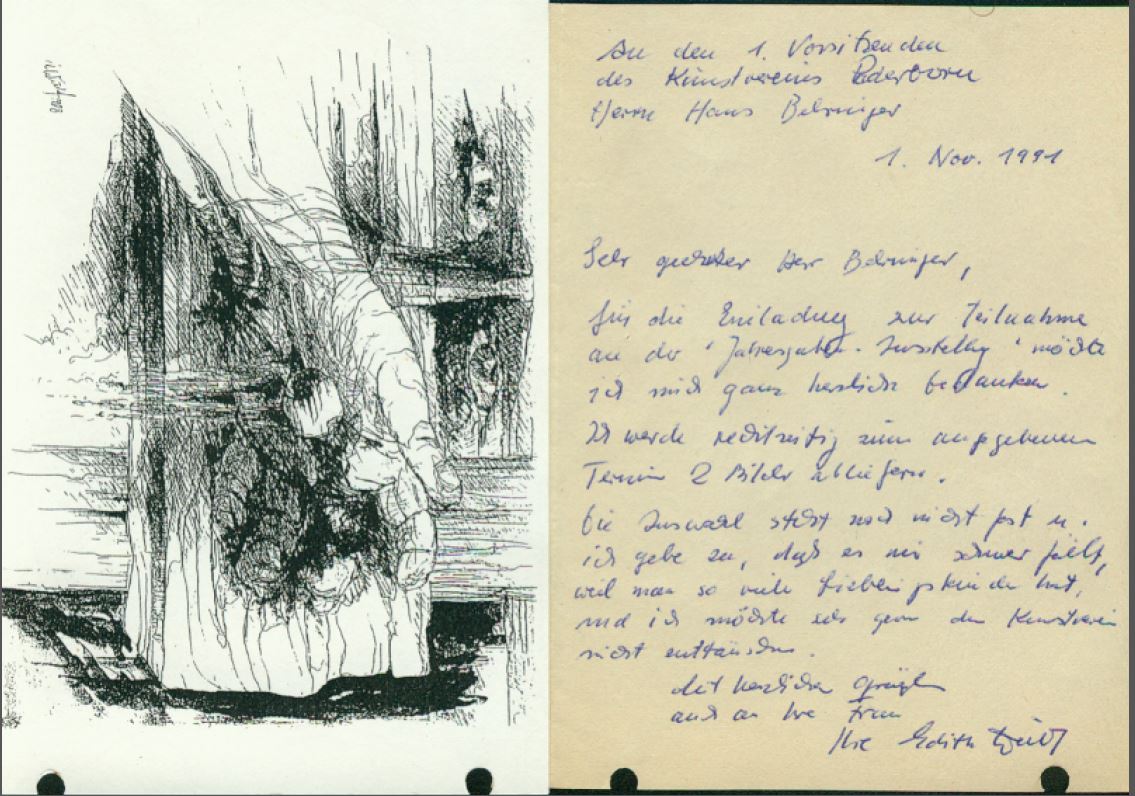 An den 1. Vorsitzenden
des Kunstvereins Paderborn
Herrn Hans Behringer
1. Nov. 1991
Sehr geehrter Herr Behringer,
für die Einladung zur Teilnahme
an der "Jahresgaben-Ausstellung" möchte
ich mich ganz herzlich bedanken.
Ich werde rechtzeitig zum angegebenen
Termin 2 Bilder abliefern.
Die Auswahl steht noch nicht fest u.
ich gebe zu, daß es mir schwer fällt,
weil man so viele Lieblingskinder hat,
und ich möchte sehr gern den Kunstverein
nicht enttäuschen.
Mit herzlichen Grüßen
auch an Ihre Frau
Ihre Edith